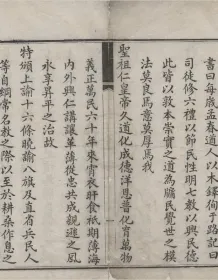 書曰每歲孟春遒人以木鐸徇于路記曰
司徒修六禮以節民性明七教以興民德
此皆以敦本崇實之道為牖民覺世之模
法莫良焉意莫厚焉我
聖祖仁皇帝久道化成德洋恩普仁育萬物
義正萬民六十年來宵衣旰食祇期薄海
內外興仁講讓革薄從忠共成親遜之風
永享昇平之治故
特頒上諭十六條曉諭八旗及直省兵民人
等自綱常名教之際以至於耕桑作息之